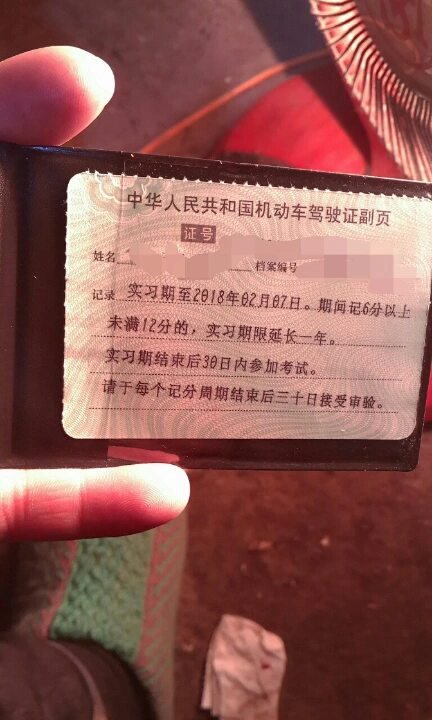 中华人民共和国机动车驾驶证副页
证号
姓名 档案编号
记录 实习期至2018年02月07日。期间记6分以上
未满12分的，实习期限延长一年。
实习期结束后30日内参加考试。
请于每个记分周期结束后三十日接受审验。